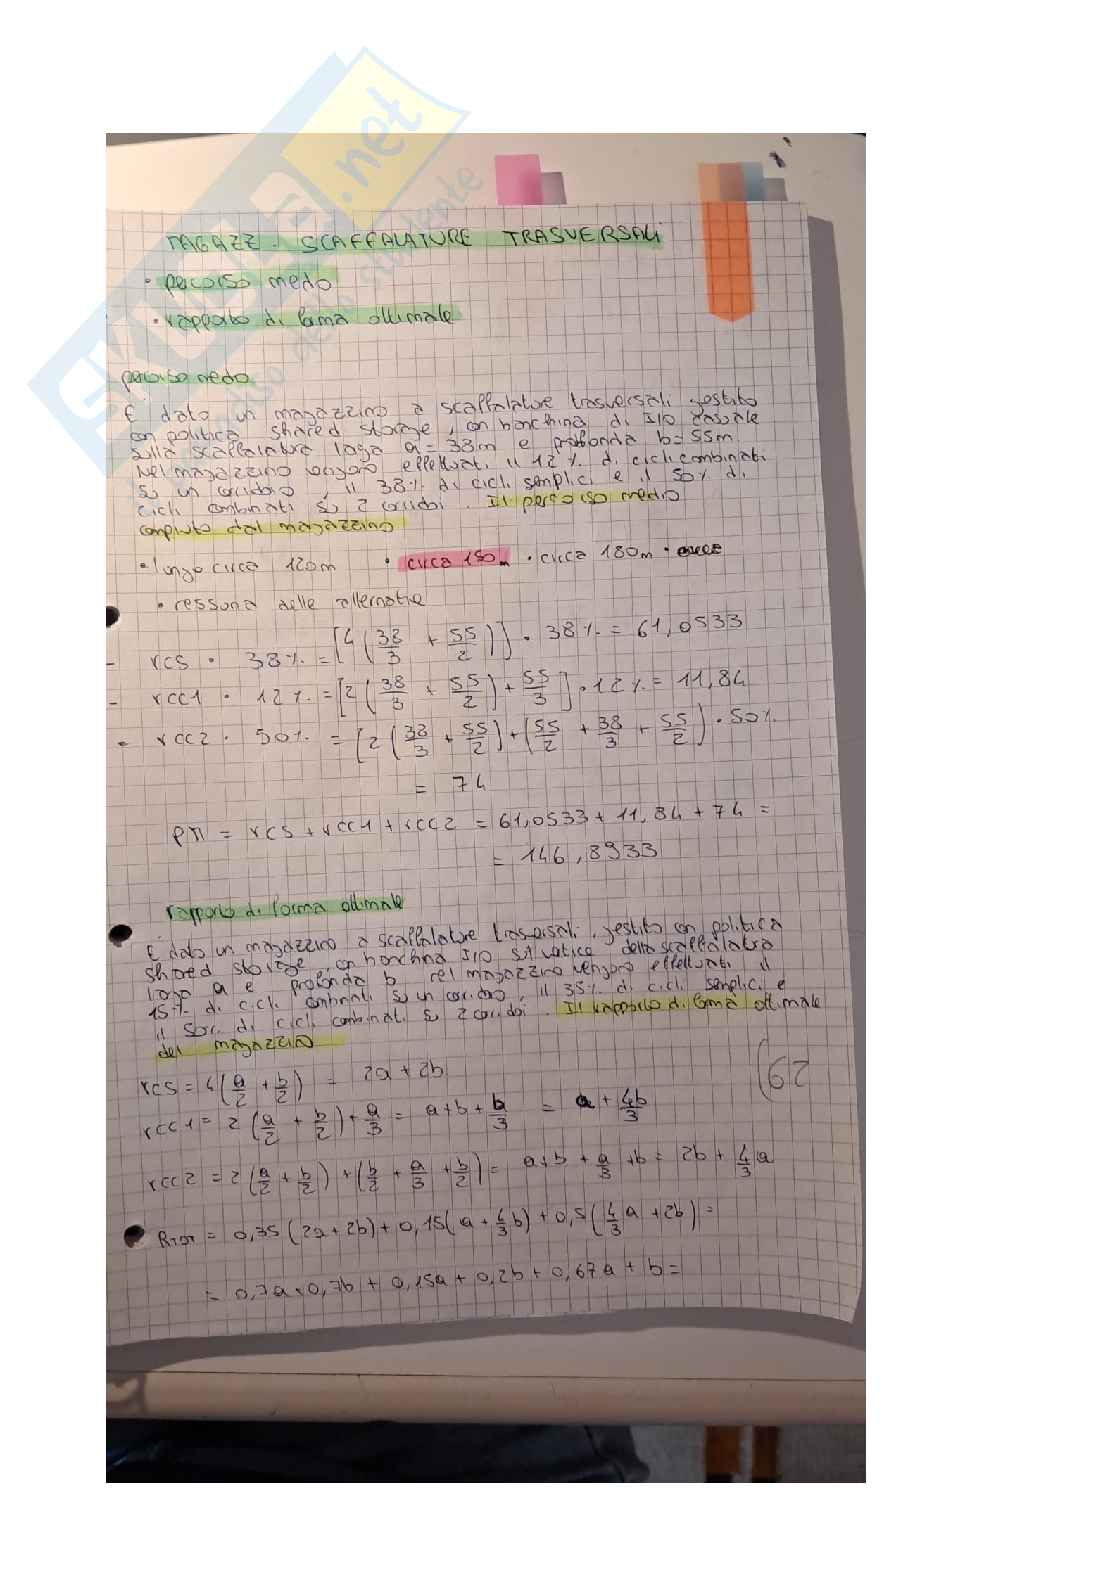 SKUOLA.net
paradiso dello studente
MAGAZZ. SCAFFALATURE TRASVERSALI
• percorso medio
• rapporto di forma ottimale
percorso medio
È dato un magazzino a scaffalature trasversali gestito
con politica shared storage, con banchina di I/O casuale
sulla scaffalatura larga a = 38m e profonda b = 55m
Nel magazzino vengono effettuati il 12% di cicli combinati
su un corridoio, il 38% di cicli semplici e il 50% di
cicli combinati su 2 corridoi. Il percorso medio
compiuto dal magazzino
• lungo circa 120m • circa 150m • circa 180m •
• nessuna delle alternative
- rcs • 38% = [4(38/3 + 55/2)] • 38% = 61,0533
- rcc1 • 12% = [2(38/3 + 55/2) + 55/3] • 12% = 11,84
- rcc2 • 50% = [2(38/3 + 55/2) + (55/2 + 38/3 + 55/2) • 50%
= 74
PM = rcs + rcc1 + rcc2 = 61,0533 + 11,84 + 74 =
= 146,8933
rapporto di forma ottimale
È dato un magazzino a scaffalature trasversali, gestito con politica
shared storage, con banchina I/O sul vertice della scaffalatura
larga a e profonda b nel magazzino vengono effettuati il
15% di cicli combinati su un corridoio, il 35% di cicli semplici e
il 50% di cicli combinati su 2 corridoi. Il rapporto di forma ottimale
del magazzino
29)
rcs = 4(a/2 + b/2) = 2a + 2b
rcc1 = 2(a/2 + b/2) + a/3 = a + b + b/3 = a + 4b/3
rcc2 = 2(a/2 + b/2) + (b/2 + a/3 + b/2) = a + b + a/3 + b = 2b + 4/3 a
• RTOT = 0,35(2a + 2b) + 0,15(a + 4/3 b) + 0,5(4/3 a + 2b) =
= 0,7a + 0,7b + 0,15a + 0,2b + 0,67a + b =